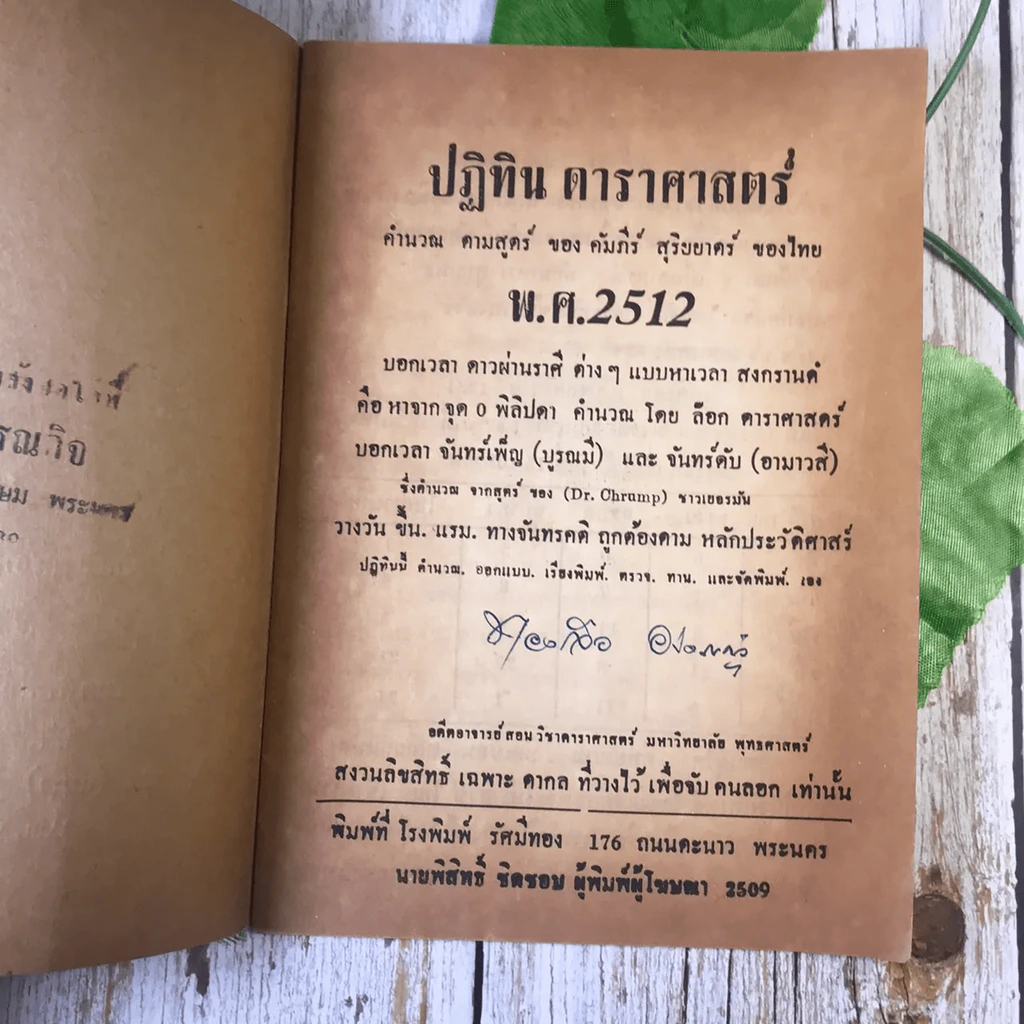 พระนคร
ปฏิทิน ดาราศาสตร์
คำนวณ ตามสูตร์ ของ คัมภีร์ สุริยยาตร์ ของไทย
พ.ศ.2512
บอกเวลา ดาวผ่านราศี ต่าง ๆ แบบหาเวลา สงกรานต์
คือ หาจาก จุด 0 พิลิปดา คำนวณ โดย ล๊อก ดาราศาสตร์
บอกเวลา จันทร์เพ็ญ (บูรณมี) และ จันทร์ดับ (อามาวสี)
ซึ่งคำนวณ จากสูตร์ ของ (Dr. Chrump) ชาวเยอรมัน
วางวัน ขึ้น. แรม. ทางจันทรคติ ถูกต้องตาม หลักประวัติศาสร์
ปฏิทินนี้ คำนวณ. ออกแบบ. เรียงพิมพ์. ตรวจ. ทาน. และจัดพิมพ์. เอง
อดีตอาจารย์ สอน วิชาดาราศาสตร์ มหาวิทยาลัย พุทธศาสตร์
สงวนลิขสิทธิ์ เฉพาะ ดากล ที่วางไว้ เพื่อจับ คนลอก เท่านั้น
พิมพ์ที่ โรงพิมพ์ รัศมีทอง 176 ถนนตะนาว พระนคร
นายพิสิทธิ์ ชิดชอบ ผู้พิมพ์ผู้โฆษณา 2509